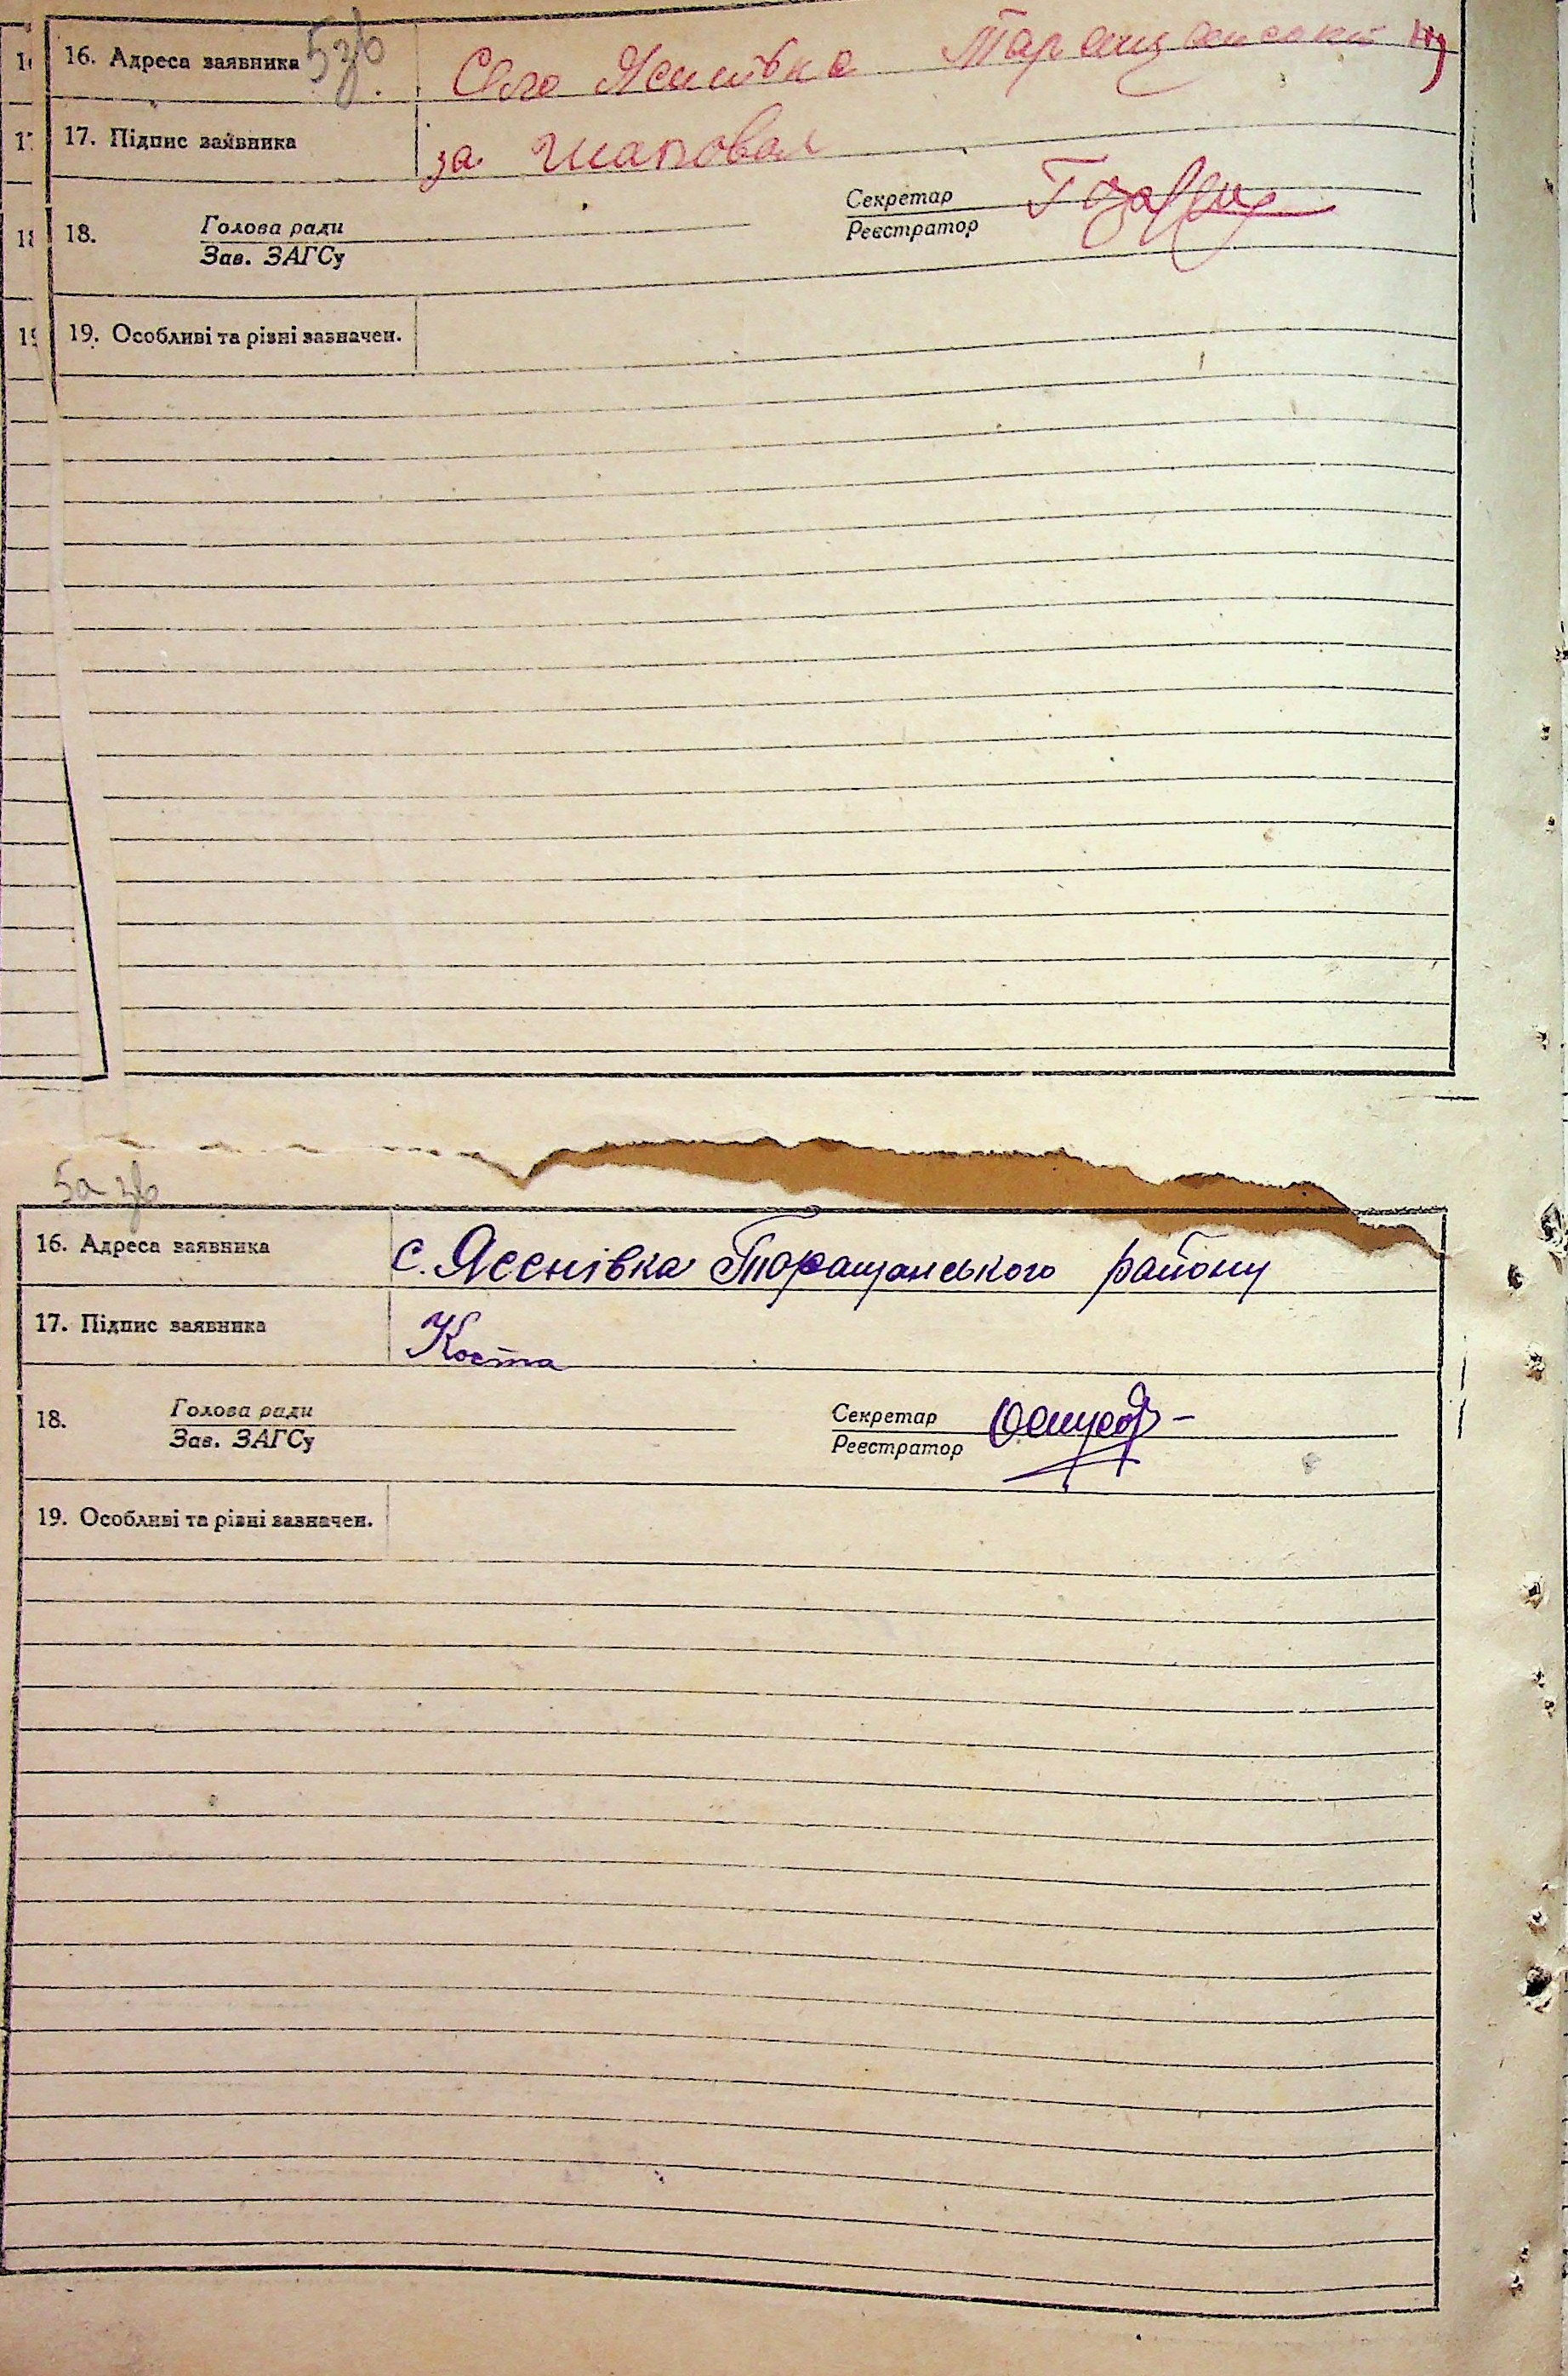 5зв
16. Адреса заявника Село Яснівка Таращанськ
17. Підпис заявника за шаповал
18. Голова ради Секретар
Зав. ЗАГСу Реєстратор
19. Особливі та різні зазначен.
5а зв
16. Адреса заявника с. Ясєнівка Таращанського району
17. Підпис заявника Коста
18. Голова ради Секретар
Зав. ЗАГСу Реєстратор
19. Особливі та різні зазначен.